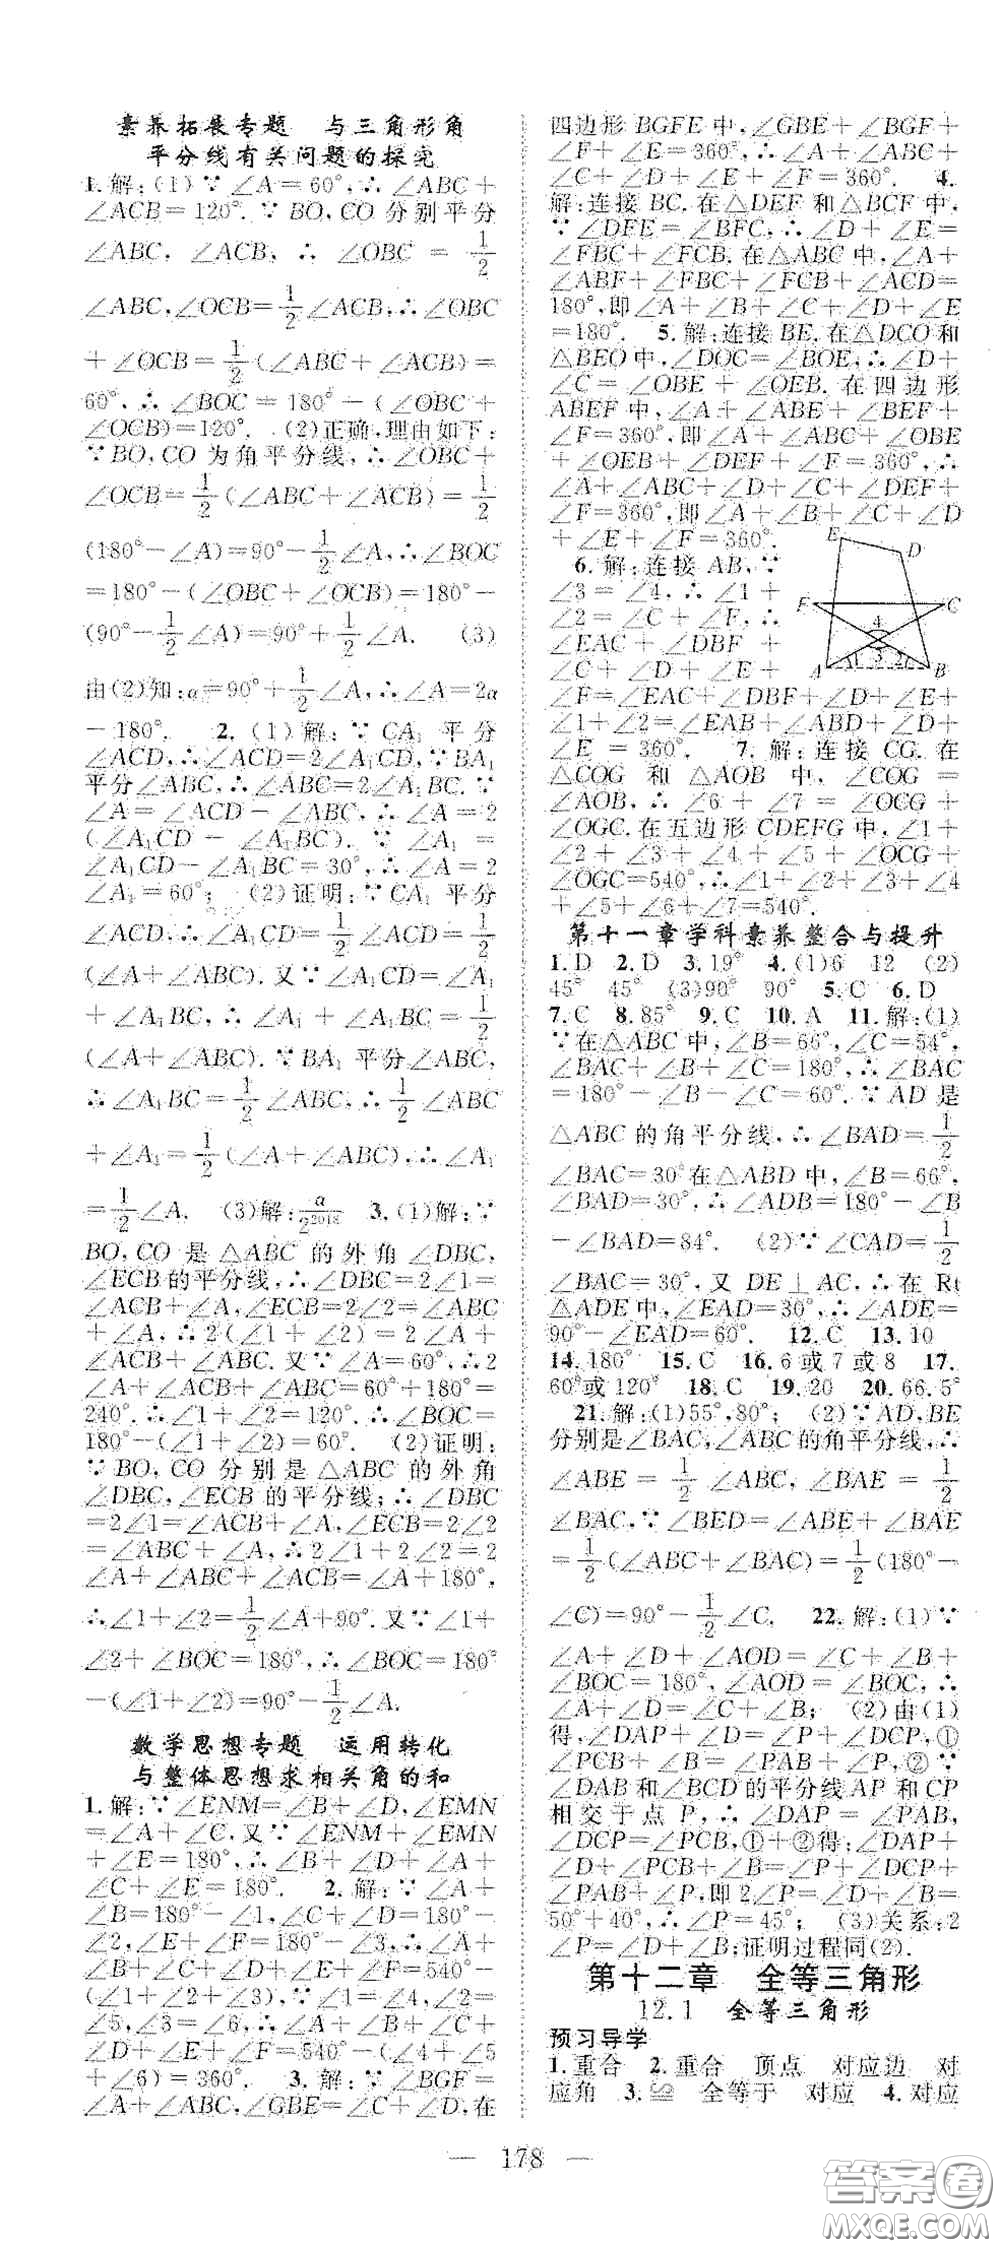 素养拓展专题　与三角形角
平分线有关问题的探究
1.解:(1)∵∠A=60°,∴∠ABC+
∠ACB=120°.∵BO,CO分别平分
∠ABC,∠ACB,∴∠OBC=1/2
∠ABC,∠OCB=1/2∠ACB,∴∠OBC
+∠OCB=1/2(∠ABC+∠ACB)=
60°,∴∠BOC=180°-(∠OBC+
∠OCB)=120°.　(2)正确,理由如下:
∵BO,CO为角平分线,∴∠OBC+
∠OCB=1/2(∠ABC+∠ACB)=1/2
(180°-∠A)=90°-1/2∠A,∴∠BOC
=180°-(∠OBC+∠OCB)=180°-
(90°-1/2∠A)=90°+1/2∠A.　(3)
由(2)知:α=90°+1/2∠A,∴∠A=2α
-180°.　2.(1)解:∵CA₁平分
∠ACD,∴∠ACD=2∠A₁CD,∵BA₁
平分∠ABC,∴∠ABC=2∠A₁BC.∵
∠A=∠ACD-∠ABC,∴∠A=2
(∠A₁CD-∠A₁BC).∵∠A₁=
∠A₁CD-∠A₁BC=30°,∴∠A=2
∠A₁=60°;　(2)证明:∵CA₁平分
∠ACD,∴∠A₁CD=1/2∠ACD=1/2
(∠A+∠ABC).又∵∠A₁CD=∠A₁
+∠A₁BC,∴∠A₁+∠A₁BC=1/2
(∠A+∠ABC).∵BA₁平分∠ABC,
∴∠A₁BC=1/2∠ABC,∴1/2∠ABC
+∠A₁=1/2(∠A+∠ABC),∴∠A₁
=1/2∠A.　(3)解:α/2²⁰¹⁸　3.(1)解:∵
BO,CO是△ABC的外角∠DBC,
∠ECB的平分线,∴∠DBC=2∠1=
∠ACB+∠A,∠ECB=2∠2=∠ABC
+∠A,∴2(∠1+∠2)=2∠A+
∠ACB+∠ABC.又∵∠A=60°,∴2
∠A+∠ACB+∠ABC=60°+180°=
240°.∴∠1+∠2=120°.∴∠BOC=
180°-(∠1+∠2)=60°.　(2)证明:
∵BO,CO分别是△ABC的外角
∠DBC,∠ECB的平分线;∴∠DBC
=2∠1=∠ACB+∠A,∠ECB=2∠2
=∠ABC+∠A,∴2∠1+2∠2=2
∠A+∠ABC+∠ACB=∠A+180°,
∴∠1+∠2=1/2∠A+90°.又∵∠1+
∠2+∠BOC=180°,∴∠BOC=180°
-(∠1+∠2)=90°-1/2∠A.
数学思想专题　运用转化
与整体思想求相关角的和
1.解:∵∠ENM=∠B+∠D,∠EMN
=∠A+∠C,又∵∠ENM+∠EMN
+∠E=180°,∴∠B+∠D+∠A+
∠C+∠E=180°.　2.解:∵∠A+
∠B=180°-∠1,∠C+∠D=180°-
∠2,∠E+∠F=180°-∠3,∴∠A+
∠B+∠C+∠D+∠E+∠F=540°-
(∠1+∠2+∠3),∵∠1=∠4,∠2=
∠5,∠3=∠6,∴∠A+∠B+∠C+
∠D+∠E+∠F=540°-(∠4+∠5+
∠6)=360°.　3.解:∵∠BGF=
∠A+∠ABC,∠GBE=∠C+∠D,在
四边形BGFE中,∠GBE+∠BGF+
∠F+∠E=360°,∴∠A+∠ABC+
∠C+∠D+∠E+∠F=360°.　4.
解:连接BC.在△DEF和△BCF中,
∵∠DFE=∠BFC,∴∠D+∠E=
∠FBC+∠FCB.在△ABC中,∠A+
∠ABF+∠FBC+∠FCB+∠ACD=
180°,即∠A+∠B+∠C+∠D+∠E
=180°.　5.解:连接BE,在△DCO和
△BEO中,∠DOC=∠BOE,∴∠D+
∠C=∠OBE+∠OEB.在四边形
ABEF中,∠A+∠ABE+∠BEF+
∠F=360°,即∠A+∠ABC+∠OBE
+∠OEB+∠DEF+∠F=360°,∴
∠A+∠ABC+∠D+∠C+∠DEF+
∠F=360°,即∠A+∠B+∠C+∠D
+∠E+∠F=360°.
6.解:连接AB,∵
∠3=∠4,∴∠1+
∠2=∠C+∠F,∴
∠EAC+∠DBF+
∠C+∠D+∠E+
∠F=∠EAC+∠DBF+∠D+∠E+
∠1+∠2=∠EAB+∠ABD+∠D+
∠E=360°.　7.解:连接CG.在
△COG和△AOB中,∠COG=
∠AOB,∴∠6+∠7=∠OCG+
∠OGC.在五边形CDEFG中,∠1+
∠2+∠3+∠4+∠5+∠OCG+
∠OGC=540°,∴∠1+∠2+∠3+∠4
+∠5+∠6+∠7=540°.
E
D
F
C
4
3
A
1
2
B
第十一章学科素养整合与提升
1.D　2.D　3.19°　4.(1)6　12　(2)
45°　45°　(3)90°　90°　5.C　6.D
7.C　8.85°　9.C　10.A　11.解:(1)
∵在△ABC中,∠B=66°,∠C=54°,
∠BAC+∠B+∠C=180°,∴∠BAC
=180°-∠B-∠C=60°.∵AD是
△ABC的角平分线,∴∠BAD=1/2
∠BAC=30°在△ABD中,∠B=66°,
∠BAD=30°,∴∠ADB=180°-∠B
-∠BAD=84°.　(2)∵∠CAD=1/2
∠BAC=30°,又DE⊥AC,∴在Rt
△ADE中,∠EAD=30°,∴∠ADE=
90°-∠EAD=60°.　12.C　13.10
14.180°　15.C　16.6或7或8　17.
60°或120°　18.C　19.20　20.66.5°
21.解:(1)55°,80°;　(2)∵AD,BE
分别是∠BAC,∠ABC的角平分线,∴
∠ABE=1/2∠ABC,∠BAE=1/2
∠BAC,∵∠BED=∠ABE+∠BAE
=1/2(∠ABC+∠BAC)=1/2(180°-
∠C)=90°-1/2∠C.　22.解:(1)∵
∠A+∠D+∠AOD=∠C+∠B+
∠BOC=180°,∠AOD=∠BOC,∴
∠A+∠D=∠C+∠B;　(2)由(1)
得,∠DAP+∠D=∠P+∠DCP,①
∠PCB+∠B=∠PAB+∠P,②∵
∠DAB和∠BCD的平分线AP和CP
相交于点P,∴∠DAP=∠PAB,
∠DCP=∠PCB,①+②得:∠DAP+
∠D+∠PCB+∠B=∠P+∠DCP+
∠PAB+∠P,即2∠P=∠D+∠B=
50°+40°,∴∠P=45°;　(3)关系:2
∠P=∠D+∠B;证明过程同(2).
第十二章　全等三角形
12.1　全等三角形
预习导学
1.重合　2.重合　顶点　对应边　对
应角　3.≌　全等于　对应　4.对应
— 178 —
答案圈
MXQE.COM